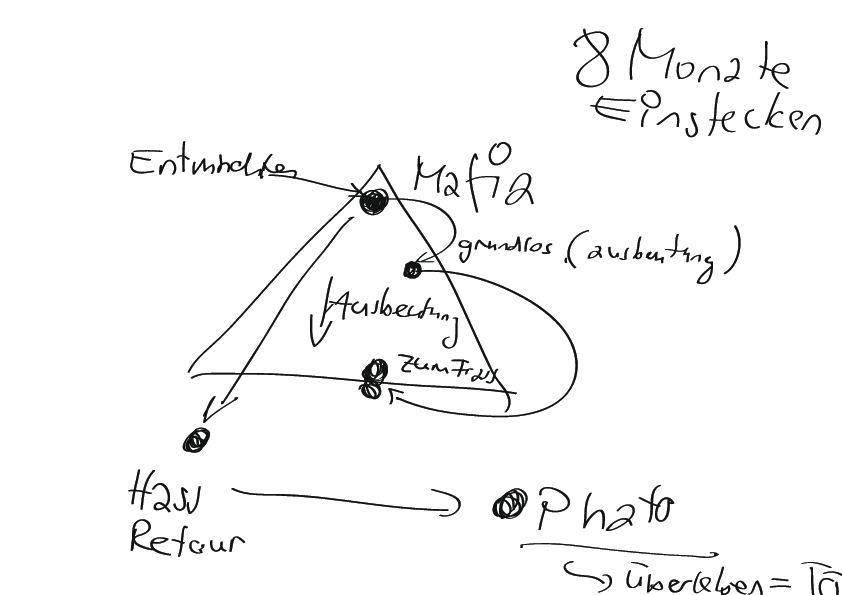 8 Monate
Einstecken
Mafia
grundlos (ausbeutung)
Ausbeutung
zum Frass
Hass
Retour
Phato
überleben =